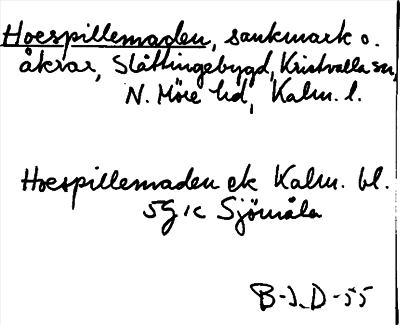 Hoespillemaden, sankmark o.
åkrar, Slättingebygd, Kristvalla sn,
N. Möre hd, Kalm. l.
Hoespillemaden ek Kalm. bl.
5G 1c Sjömåla
B-J. D-55